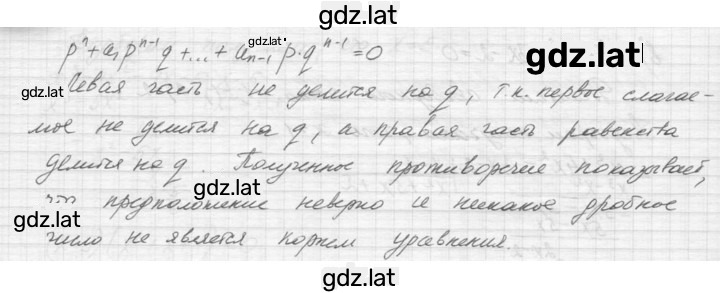 gdz.lat
pⁿ+a₁pⁿ⁻¹q+...+aₙ₋₁p·qⁿ⁻¹=0
gdz.lat
gdz.lat
gdz.lat
Левая часть не делится на q, т.к. первое слагае-
мое не делится на q, а правая часть равенства
делится на q. Полученное противоречие показывает,
gdz.lat
что предположение неверно и никакое дробное
gdz.lat
число не является корнем уравнения.
gdz.lat